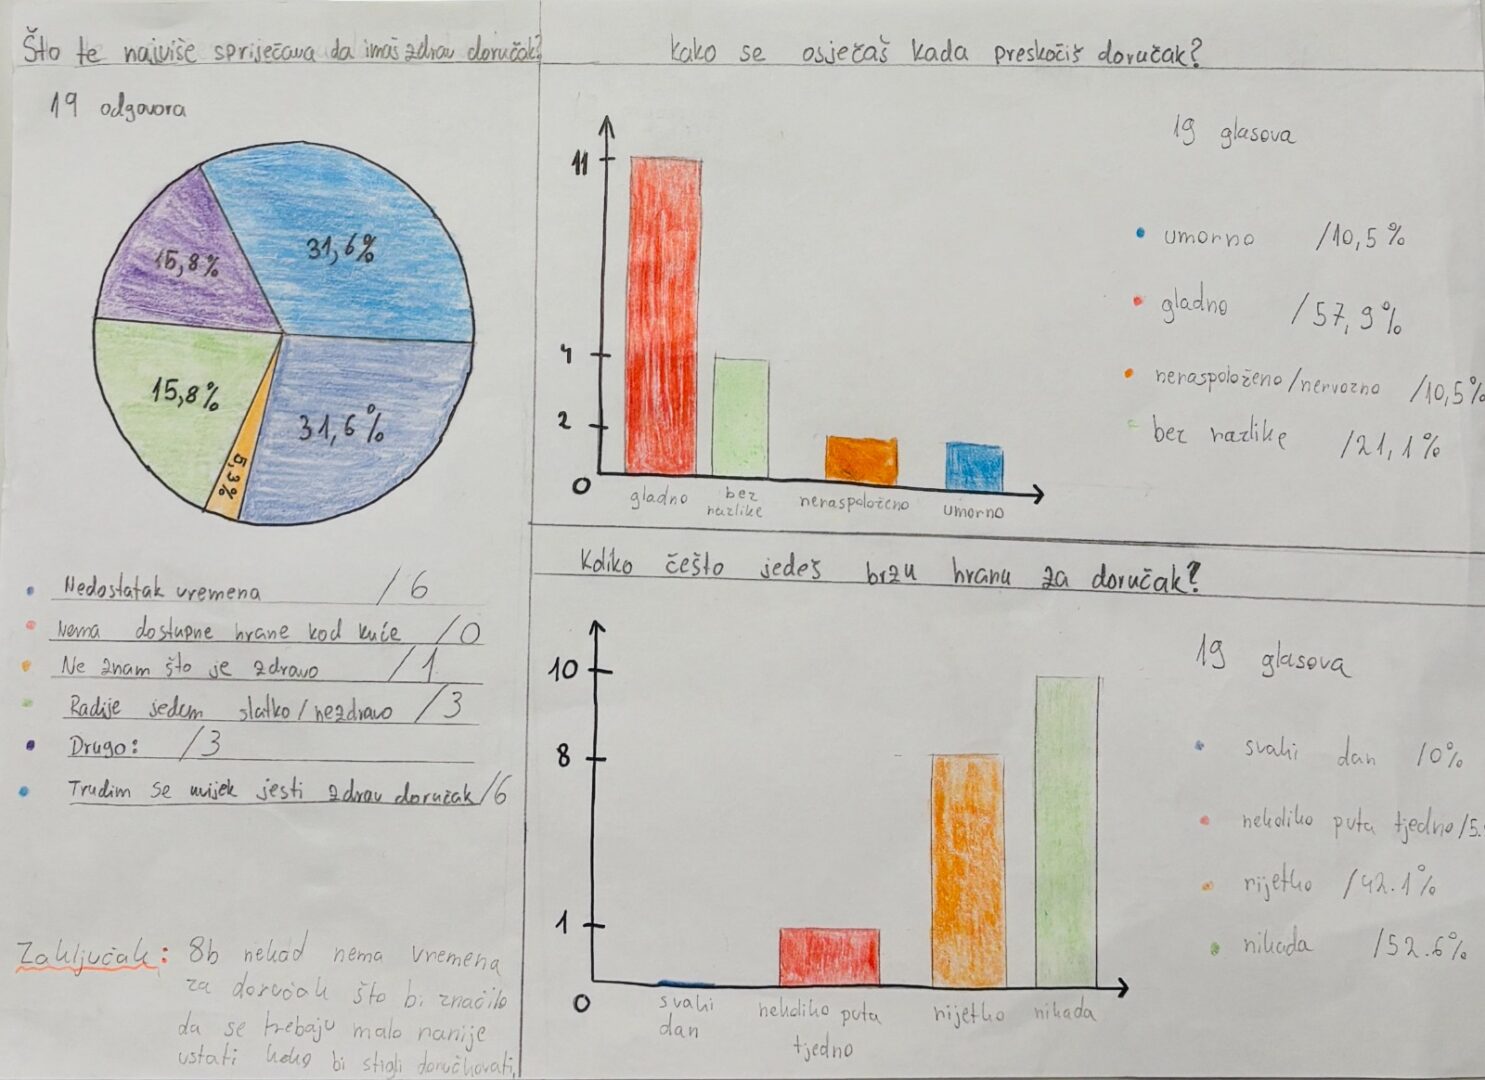 Što te najviše spriječava da imaš zdrav doručak?
19 odgovora
31,6%
15,8%
15,8%
5,3%
31,6%
Nedostatak vremena /6
Nema dostupne hrane kod kuće /0
Ne znam što je zdravo /1
Radije jedem slatko/nezdravo /3
Drugo: /3
Trudim se uvijek jesti zdrav doručak /6
Zaključak: 8b nekad nema vremena
za doručak što bi značilo
da se trebaju malo ranije
ustati kako bi stigli doručkovati.
Kako se osječaš kada preskočiš doručak?
19 glasova
11
4
2
0
gladno
bez
razlike
neraspoloženo
umorno
umorno /10,5%
gladno /57,9%
neraspoloženo/nervozno /10,5%
bez razlike /21,1%
Koliko češto jedeš brzu hranu za doručak?
19 glasova
10
8
1
0
svaki
dan
nekoliko puta
tjedno
rijetko
nikada
svaki dan /0%
nekoliko puta tjedno /5.
rijetko /42.1%
nikada /52.6%